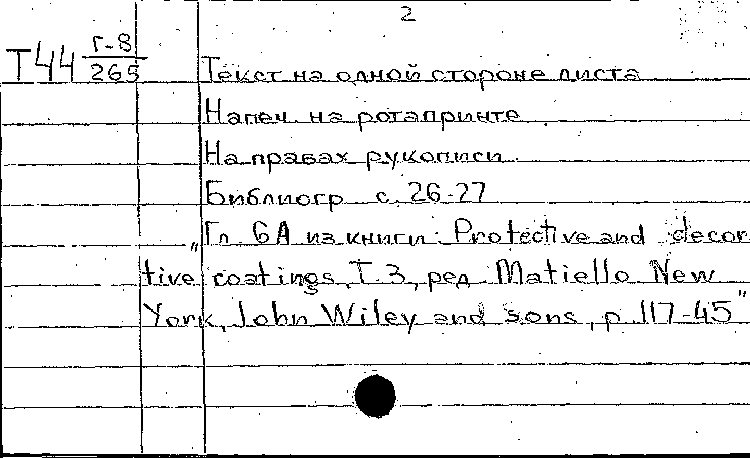 2
Т44 Г-8/265
Текст на одной стороне листа
Напеч. на ротапринте
На правах рукописи
Библиогр с. 26-27
„Гл. 6А из книги: Protective and decor
tive coatings, Т. 3, ред. Matiello New
York, John Wiley and sons, p. 117-45"